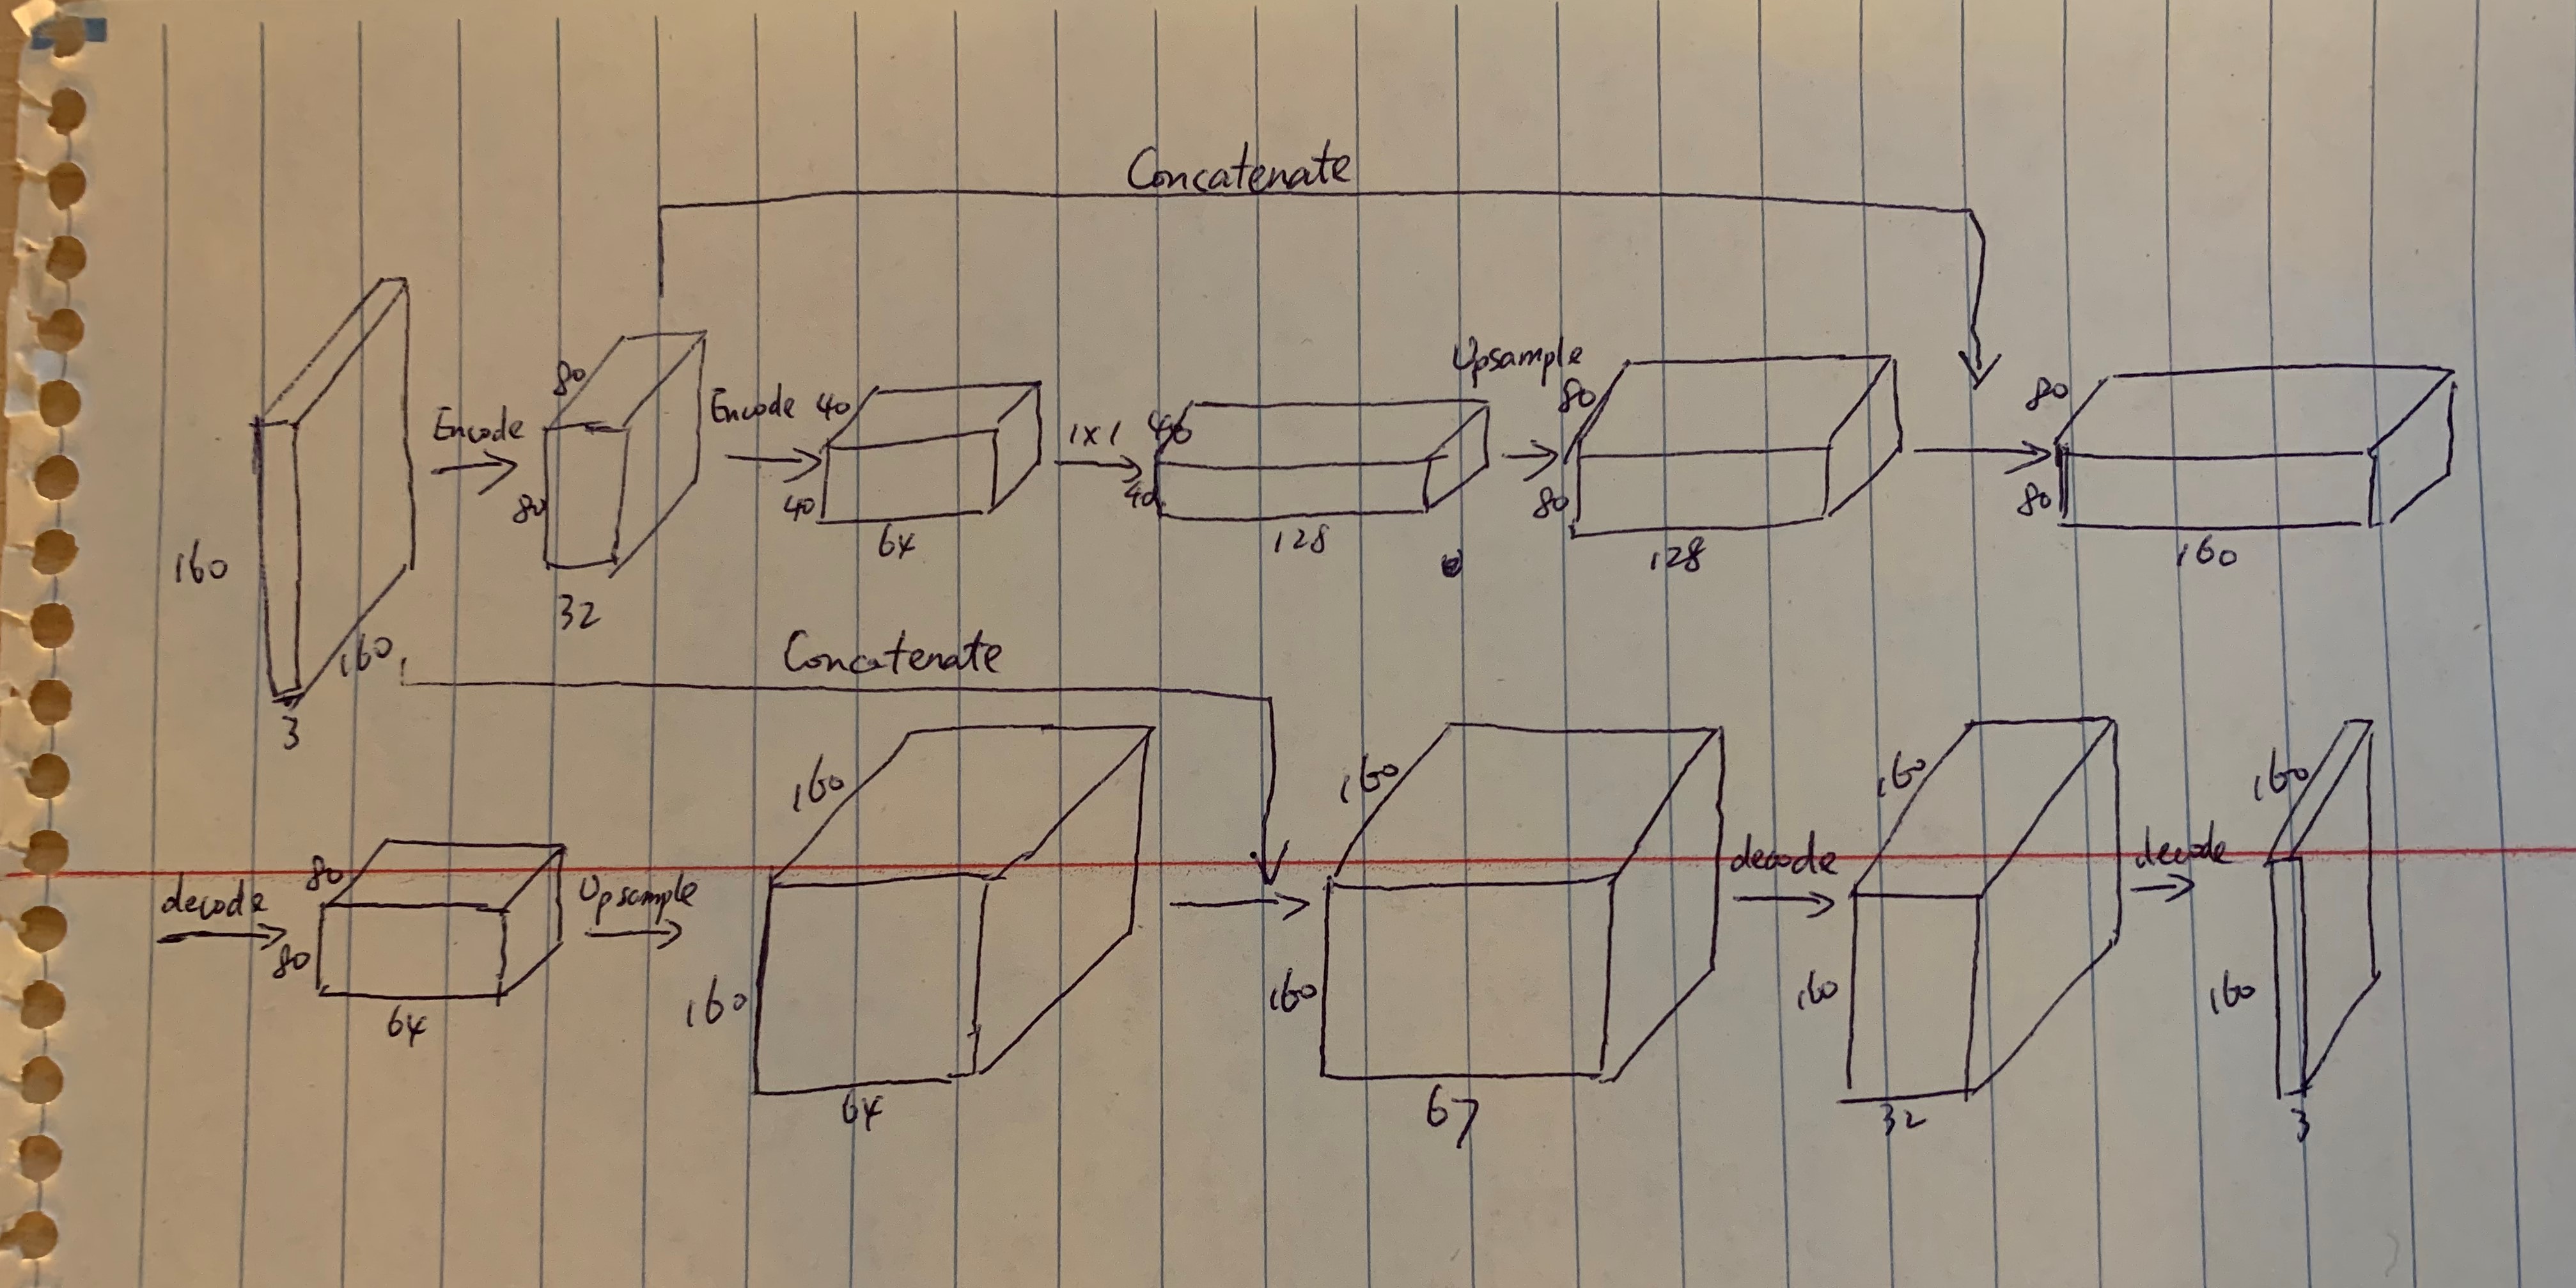 Concatenate
160
160
3
Encode
80
80
32
Encode
40
40
64
1x1
40
40
128
Upsample
80
80
128
80
80
160
Concatenate
decode
80
80
64
Upsample
160
160
64
160
160
67
decode
160
160
32
decode
160
160
3